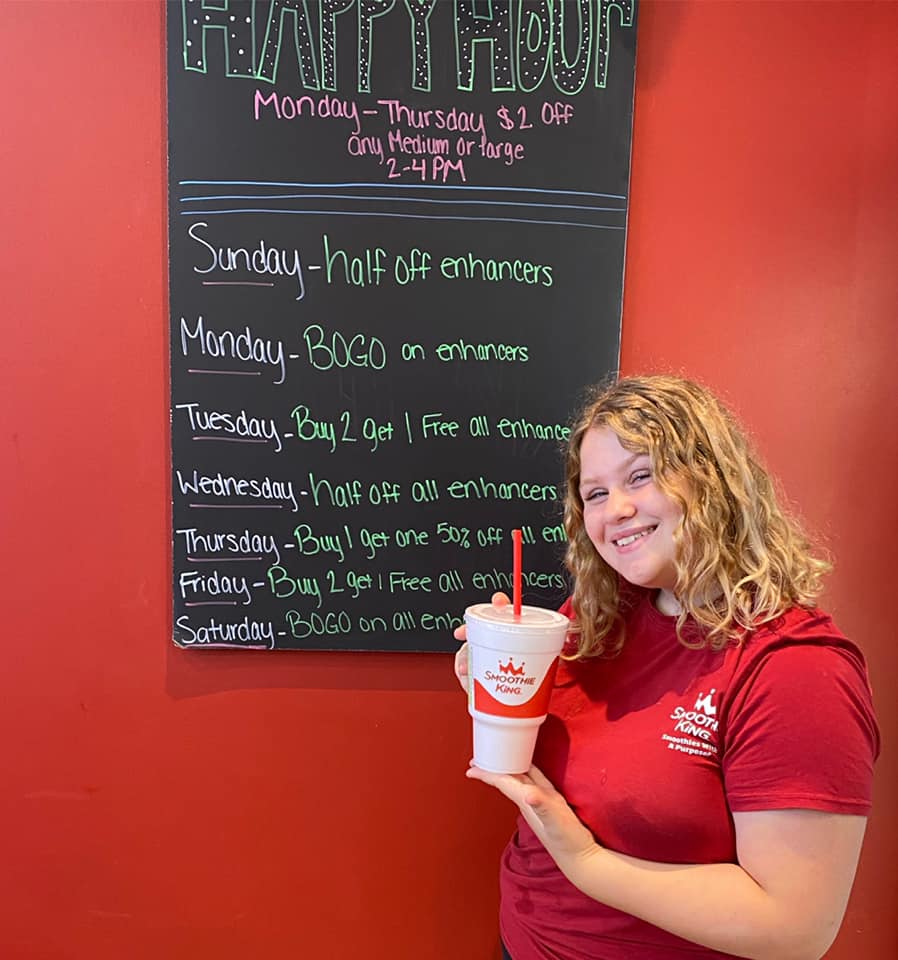 HAPPY HOUR
Monday-Thursday $2 Off
any Medium or large
2-4 PM
Sunday - half off enhancers
Monday - BOGO on enhancers
Tuesday - Buy 2 get 1 Free all enhance
Wednesday - half off all enhancers
Thursday - Buy 1 get one 50% off all en
Friday - Buy 2 get 1 Free all enhancers
Saturday - BOGO on all enh
SMOOTHIE
KING.
SMOOTH
KING
Smoothies With
A Purpose